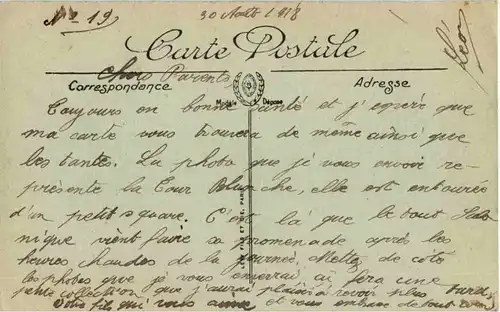 No 19
30 Août 1918
Léon
Carte Postale
Chers Parents
Correspondance
Adresse
Modèle Déposé
Toujours en bonne santé et j'espère que
ma carte vous trouvera de même ainsi que
les tantes. La photo que je vous envoie re-
présente la Tour Blanche, elle est entourée
d'un petit square. C'est là que le tout Salo
nique vient faire sa promenade après les
heures chaudes de la journée. Mettez de coté
les photos que je vous enverrai ça fera une
petite collection que j'aurai plaisir à revoir plus tard
Votre fils qui vous aime et vous embrasse de tout cœur